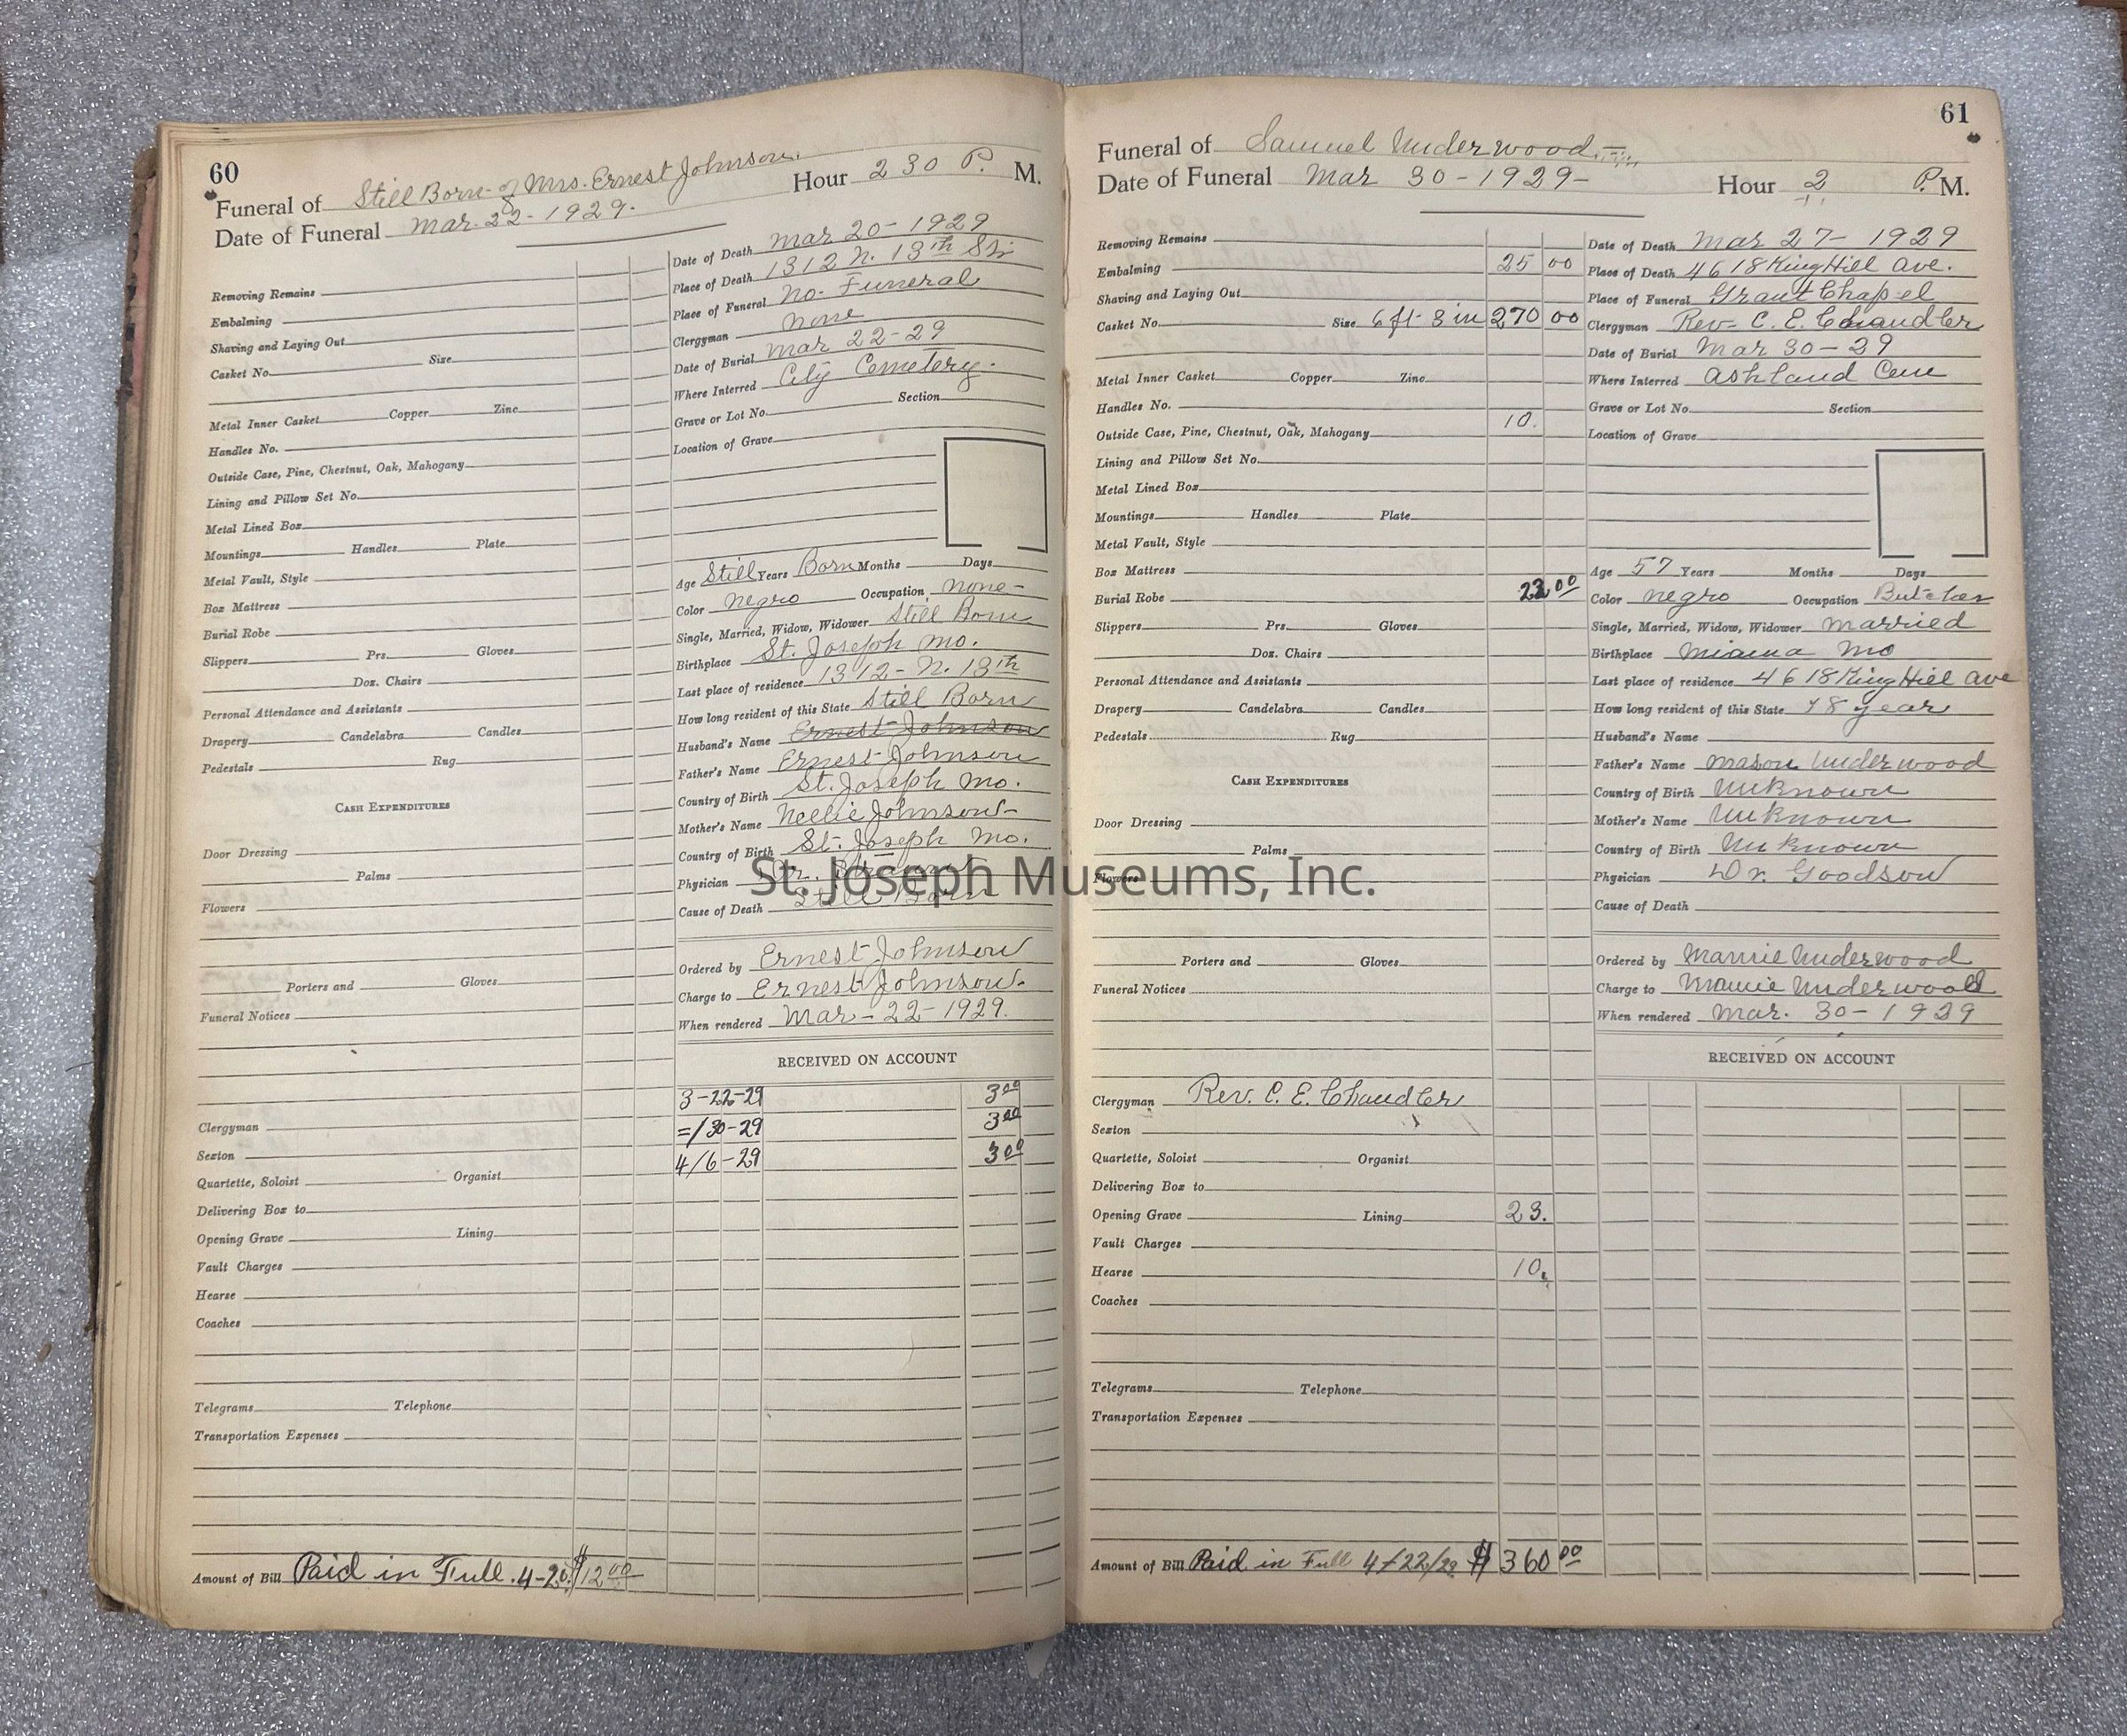 60
Funeral of Still Born of Mrs. Ernest Johnson.
Date of Funeral Mar. 22 - 1929. Hour 2 30 P. M.
Removing Remains
Embalming
Shaving and Laying Out
Casket No. Size
Metal Inner Casket Copper Zinc
Handles No.
Outside Case, Pine, Chestnut, Oak, Mahogany
Lining and Pillow Set No.
Metal Lined Box
Mountings Handles Plate
Metal Vault, Style
Box Mattress
Burial Robe
Slippers Prs. Gloves
Doz. Chairs
Personal Attendance and Assistants
Drapery Candelabra Candles
Pedestals Rug
CASH EXPENDITURES
Door Dressing
Palms
Flowers
Porters and Gloves
Funeral Notices
Clergyman
Sexton
Quartette, Soloist Organist
Delivering Box to
Opening Grave Lining
Vault Charges
Hearse
Coaches
Telegrams Telephone
Transportation Expenses
Amount of Bill Paid in Full. 4-20. $12 00
Date of Death Mar 20 - 1929
Place of Death 1312 N. 13th St.
Place of Funeral No. Funeral
Clergyman None
Date of Burial Mar 22-29
Where Interred City Cemetery.
Grave or Lot No. Section
Location of Grave
Age Still Years Born Months Days
Color Negro Occupation none-
Single, Married, Widow, Widower Still Born
Birthplace St. Joseph Mo.
Last place of residence 1312 - N. 13th
How long resident of this State Still Born
Husband's Name Ernest Johnson
Father's Name Ernest Johnson
Country of Birth St. Joseph Mo.
Mother's Name Nellie Johnson-
Country of Birth St. Joseph Mo.
Physician Dr.
Cause of Death Still Born
Ordered by Ernest Johnson
Charge to Ernest Johnson.
When rendered Mar - 22 - 1929.
RECEIVED ON ACCOUNT
3-22-29 3 00
30-29 3 00
4/6-29 3 00
61
Funeral of Samuel Underwood.
Date of Funeral Mar 30 - 1929 - Hour 2 P. M.
Removing Remains
Embalming 25 00
Shaving and Laying Out
Casket No. Size 6 ft 3 in 270 00
Metal Inner Casket Copper Zinc
Handles No.
Outside Case, Pine, Chestnut, Oak, Mahogany 10.
Lining and Pillow Set No.
Metal Lined Box
Mountings Handles Plate
Metal Vault, Style
Box Mattress
Burial Robe 22 00
Slippers Prs. Gloves
Doz. Chairs
Personal Attendance and Assistants
Drapery Candelabra Candles
Pedestals Rug
CASH EXPENDITURES
Door Dressing
Palms
Flowers
Porters and Gloves
Funeral Notices
Clergyman Rev. C. E. Chandler
Sexton
Quartette, Soloist Organist
Delivering Box to
Opening Grave Lining 23.
Vault Charges
Hearse 10.
Coaches
Telegrams Telephone
Transportation Expenses
Amount of Bill Paid in Full 4/22/29 $ 360 00
Date of Death Mar 27 - 1929
Place of Death 4618 King Hill Ave.
Place of Funeral Grant Chapel
Clergyman Rev- C. E. Chandler
Date of Burial Mar 30 - 29
Where Interred Ashland Cem
Grave or Lot No. Section
Location of Grave
Age 57 Years Months Days
Color Negro Occupation Butcher
Single, Married, Widow, Widower Married
Birthplace Miama Mo
Last place of residence 4618 King Hill Ave
How long resident of this State 48 year
Husband's Name
Father's Name Mason Underwood
Country of Birth Unknown
Mother's Name Unknown
Country of Birth Unknown
Physician Dr. Goodson
Cause of Death
Ordered by Mamie Underwood
Charge to Mamie Underwood
When rendered Mar. 30 - 1929
RECEIVED ON ACCOUNT
St. Joseph Museums, Inc.